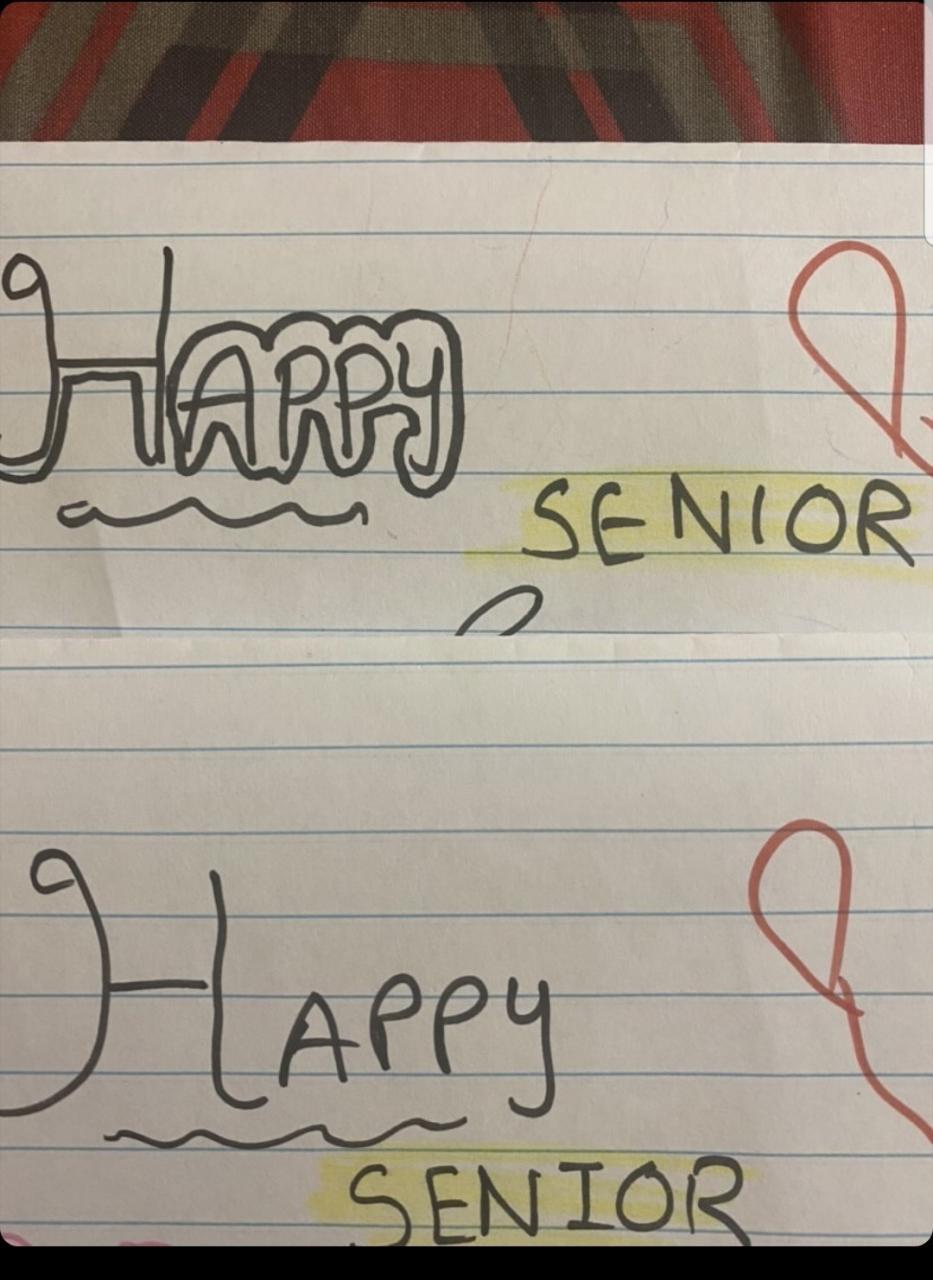 HAPPY
SENIOR
HAPPY
SENIOR